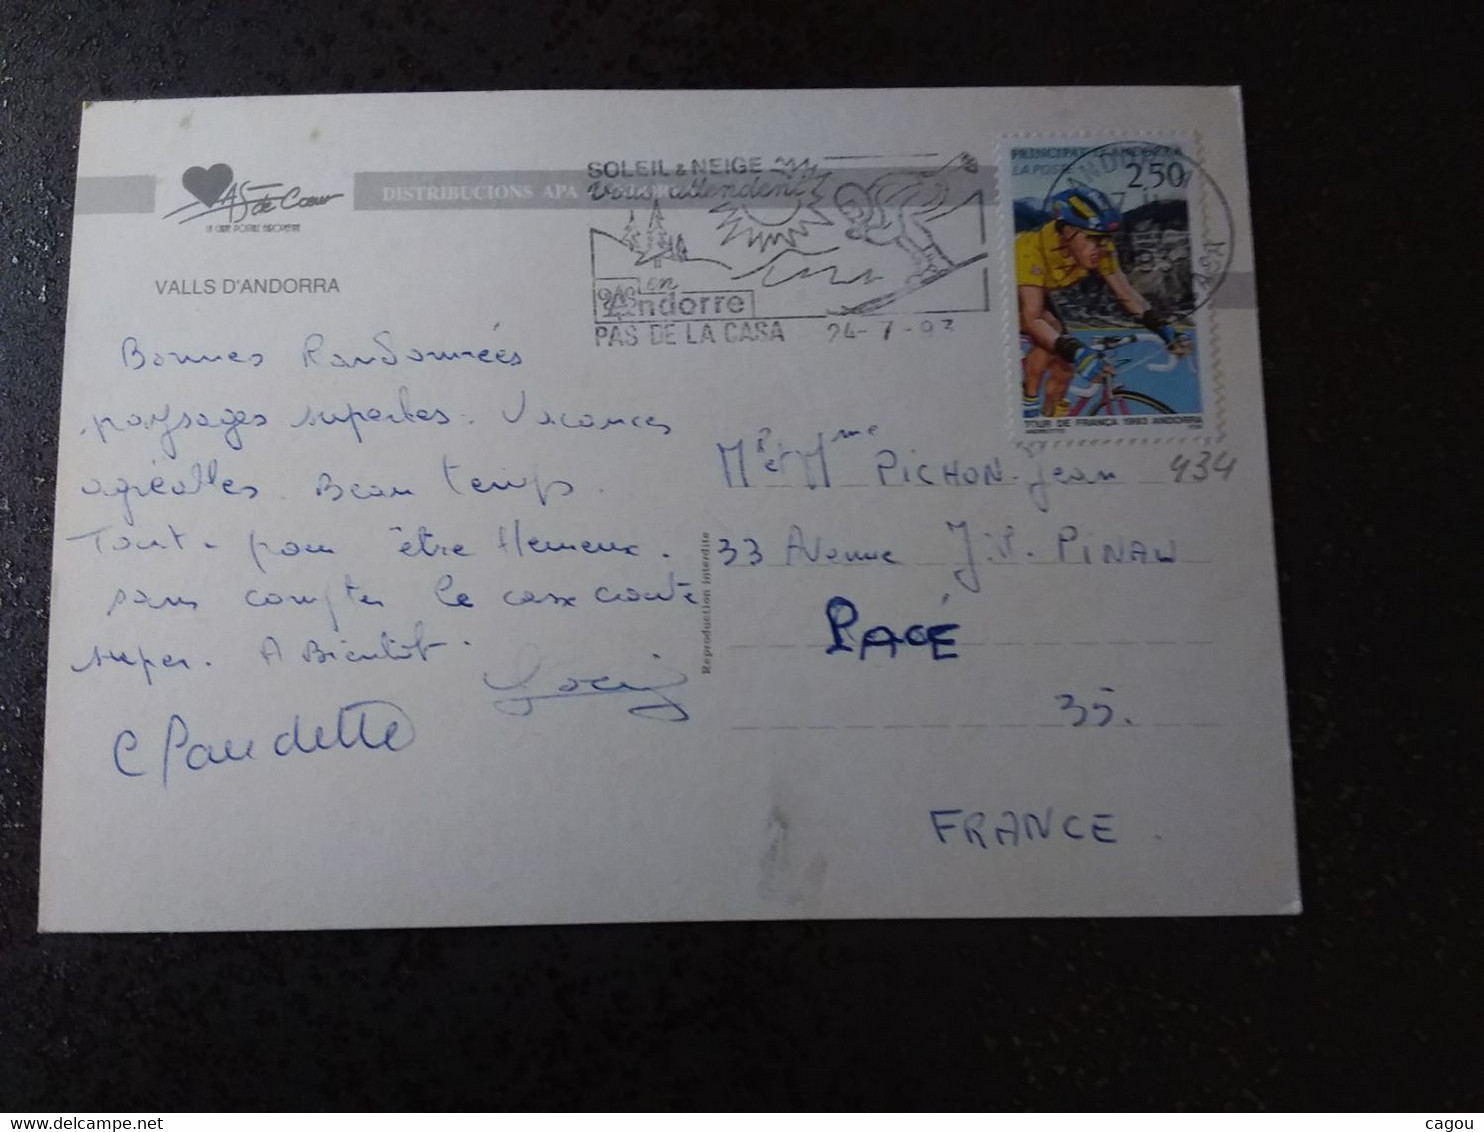 AS de Cœur
LA CARTE POSTALE EUROPEENNE
DISTRIBUCIONS APA
VALLS D'ANDORRA
SOLEIL & NEIGE
vous attendent
en
Andorre
PAS DE LA CASA 24-7-93
LA POSTE
2,50
TOUR DE FRANÇA 1993 ANDORRA
Bonnes Randonnées
paysages superbes. Vacances
agréables. Beau temps.
Tout pour être Heureux.
sans compter le casse croute
super. A Bientôt.
Claudette
Reproduction interdite
Mr et Mme PICHON Jean
434
33 Avenue J.P. PINAW
PACÉ
35.
FRANCE.
cagou